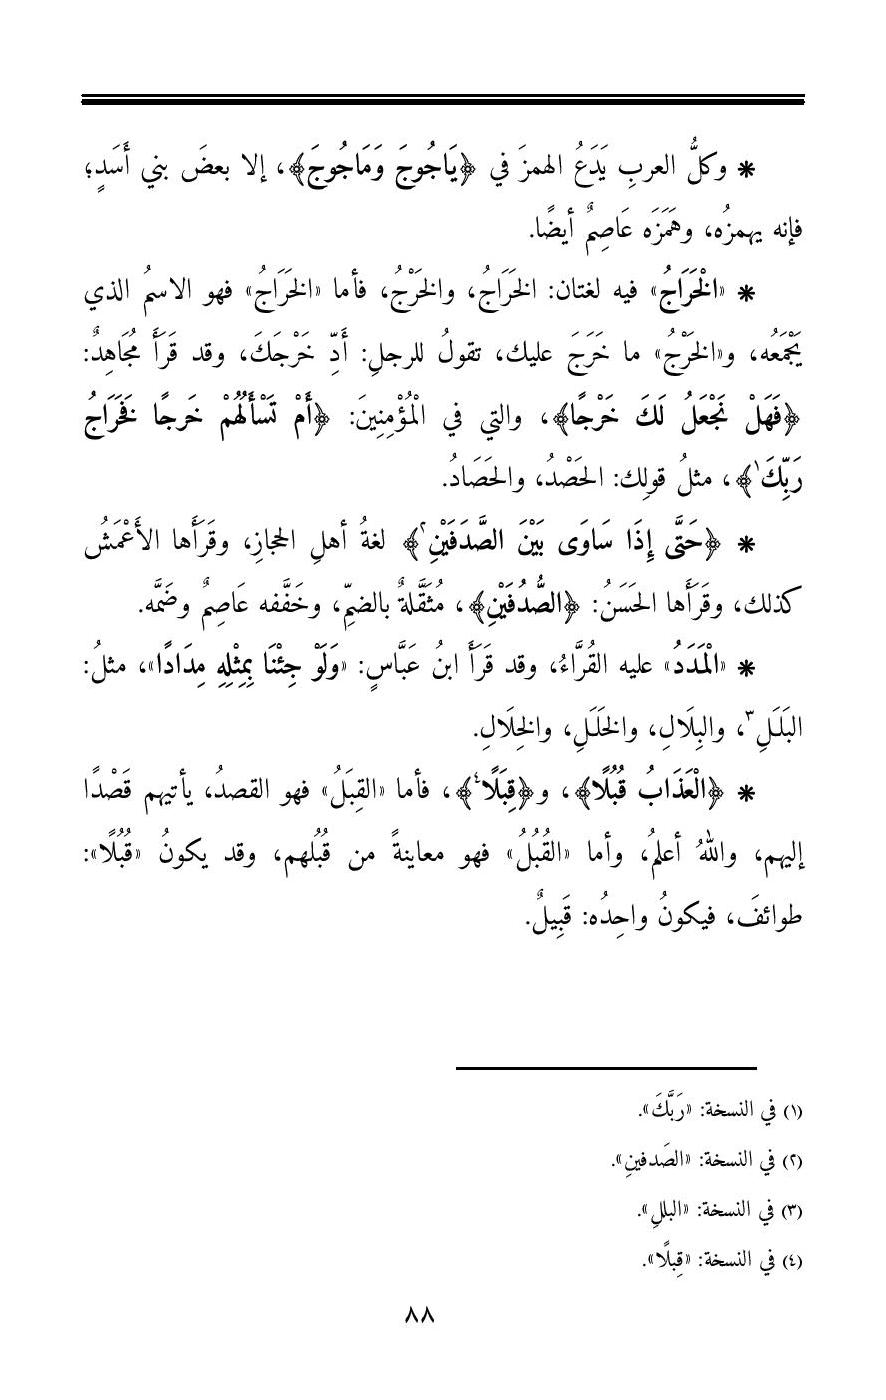 * وكلُّ العربِ يَدَعُ الهمزَ في ﴿يَاجُوجَ وَمَاجُوجَ﴾، إلا بعضَ بني أَسَدٍ؛
فإنه يهمزُه، وهَمَزَه عَاصِمٌ أيضًا.
* «الْخَرَاجُ» فيه لغتان: الخَرَاجُ، والخَرْجُ، فأما «الخَرَاجُ» فهو الاسمُ الذي
يَجْمَعُه، و«الخَرْجُ» ما خَرَجَ عليك، تقولُ للرجلِ: أَدِّ خَرْجَكَ، وقد قَرَأَ مُجَاهِدٌ:
﴿فَهَلْ نَجْعَلُ لَكَ خَرْجًا﴾، والتي في الْمُؤْمِنِينَ: ﴿أَمْ تَسْأَلُهُمْ خَرجًا فَخَرَاجُ
رَبِّكَ١﴾، مثلُ قولِك: الحَصْدُ، والحَصَادُ.
* ﴿حَتَّى إِذَا سَاوَى بَيْنَ الصَّدَفَيْنِ٢﴾ لغةُ أهلِ الحجازِ، وقَرَأَها الأَعْمَشُ
كذلك، وقَرَأَها الحَسَنُ: ﴿الصُّدُفَيْنِ﴾، مُثَقَّلةٌ بالضمِّ، وخَفَّفه عَاصِمٌ وضَمَّه.
* «الْمَدَدُ» عليه القُرَّاءُ، وقد قَرَأَ ابنُ عَبَّاسٍ: «وَلَوْ جِئْنَا بِمِثْلِهِ مِدَادًا»، مثلُ:
البَلَلِ٣، والبِلَالِ، والخَلَلِ، والخِلَالِ.
* ﴿الْعَذَابُ قُبُلًا﴾، و﴿قِبَلًا٤﴾، فأما «القِبَلُ» فهو القصدُ، يأتيهم قَصْدًا
إليهم، واللهُ أعلمُ، وأما «القُبُلُ» فهو معاينةً من قُبُلهم، وقد يكونُ «قُبُلًا»:
طوائفَ، فيكونُ واحِدُه: قَبِيلٌ.
(١) في النسخة: «رَبَّكَ».
(٢) في النسخة: «الصَدفينِ».
(٣) في النسخة: «البللِ».
(٤) في النسخة: «قِبلًا».
٨٨